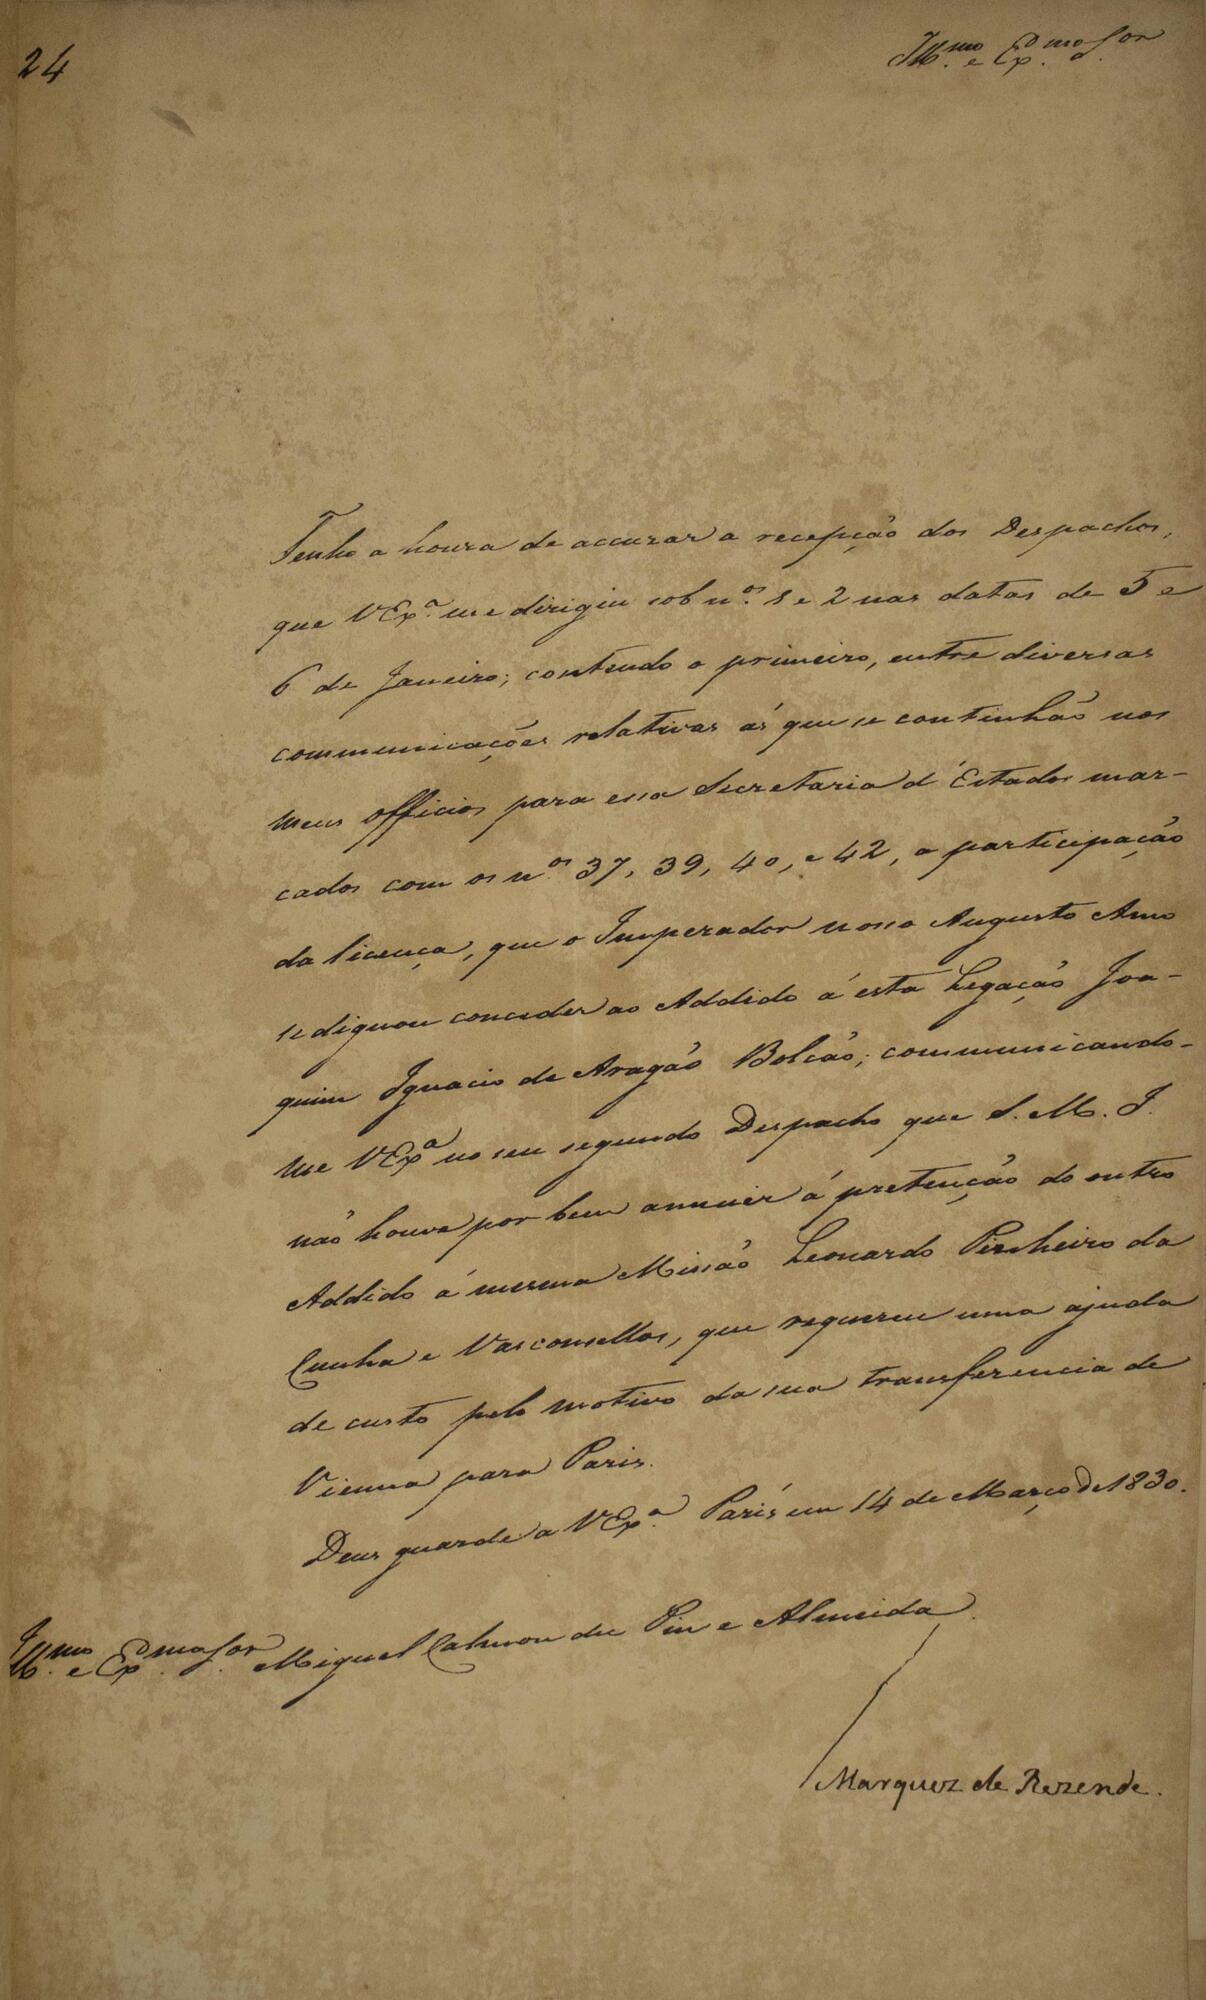 24
Ill.mo e Ex.mo Sor
Tenho a honra de accusar a recepção dos Despachos,
que VEx.a me dirigiu sob n.os 1 e 2 nas datas de 5 e
6 de Janeiro; contendo o primeiro, entre diversas
communicações relativas ás que se continhão nos
meus officios para essa Secretaria d'Estados mar-
cados com os n.os 37, 39, 40, e 42, a participação
da licença, que o Imperador nosso Augusto Amo
se dignou conceder ao Addido á esta Legação Joa-
quim Ignacio de Aragão Bolcão; communicando-
me VEx.a no seu segundo Despacho que S. M. I.
não houve por bem annuir á pretenção do outro
Addido á mesma Missão Leonardo Pinheiro da
Cunha e Vasconsellos, que requereu uma ajuda
de custo pelo motivo da sua transferencia de
Vienna para Paris.
Deus guarde a VEx.a Paris em 14 de Março de 1830.
Ill.mo e Ex.mo Sor Miguel Calmon du Pin e Almeida
Marquez de Rezende.